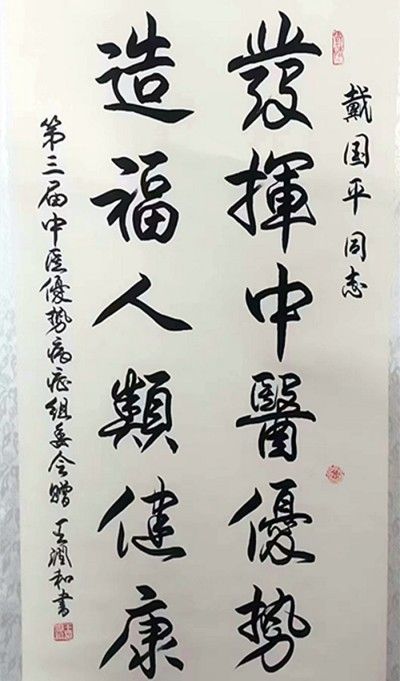 戴国平同志
發揮中醫優势
造福人類健康
第三届中医優势病症组委会赠 王润和書